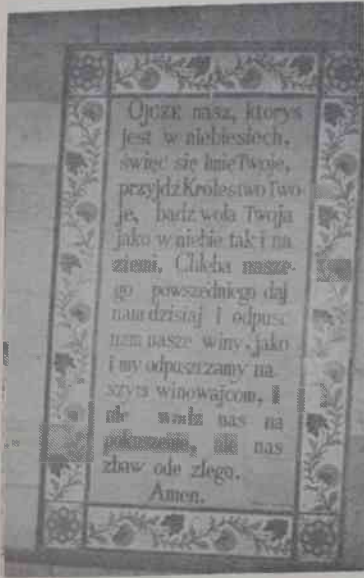 Ojcze nasz, ktorys
jest w niebiesiech,
święć się Imię Twoje,
przyjdź Krolestwo Two-
je, bądź wola Twoja
jako w niebie tak i na
ziemi. Chleba nasze-
go powszedniego daj
nam dzisiaj i odpusc
nam nasze winy, jako
i my odpuszczamy na
szym winowajcom, i
nie wodz nas na
pokuszenie, ale nas
zbaw ode złego.
Amen.